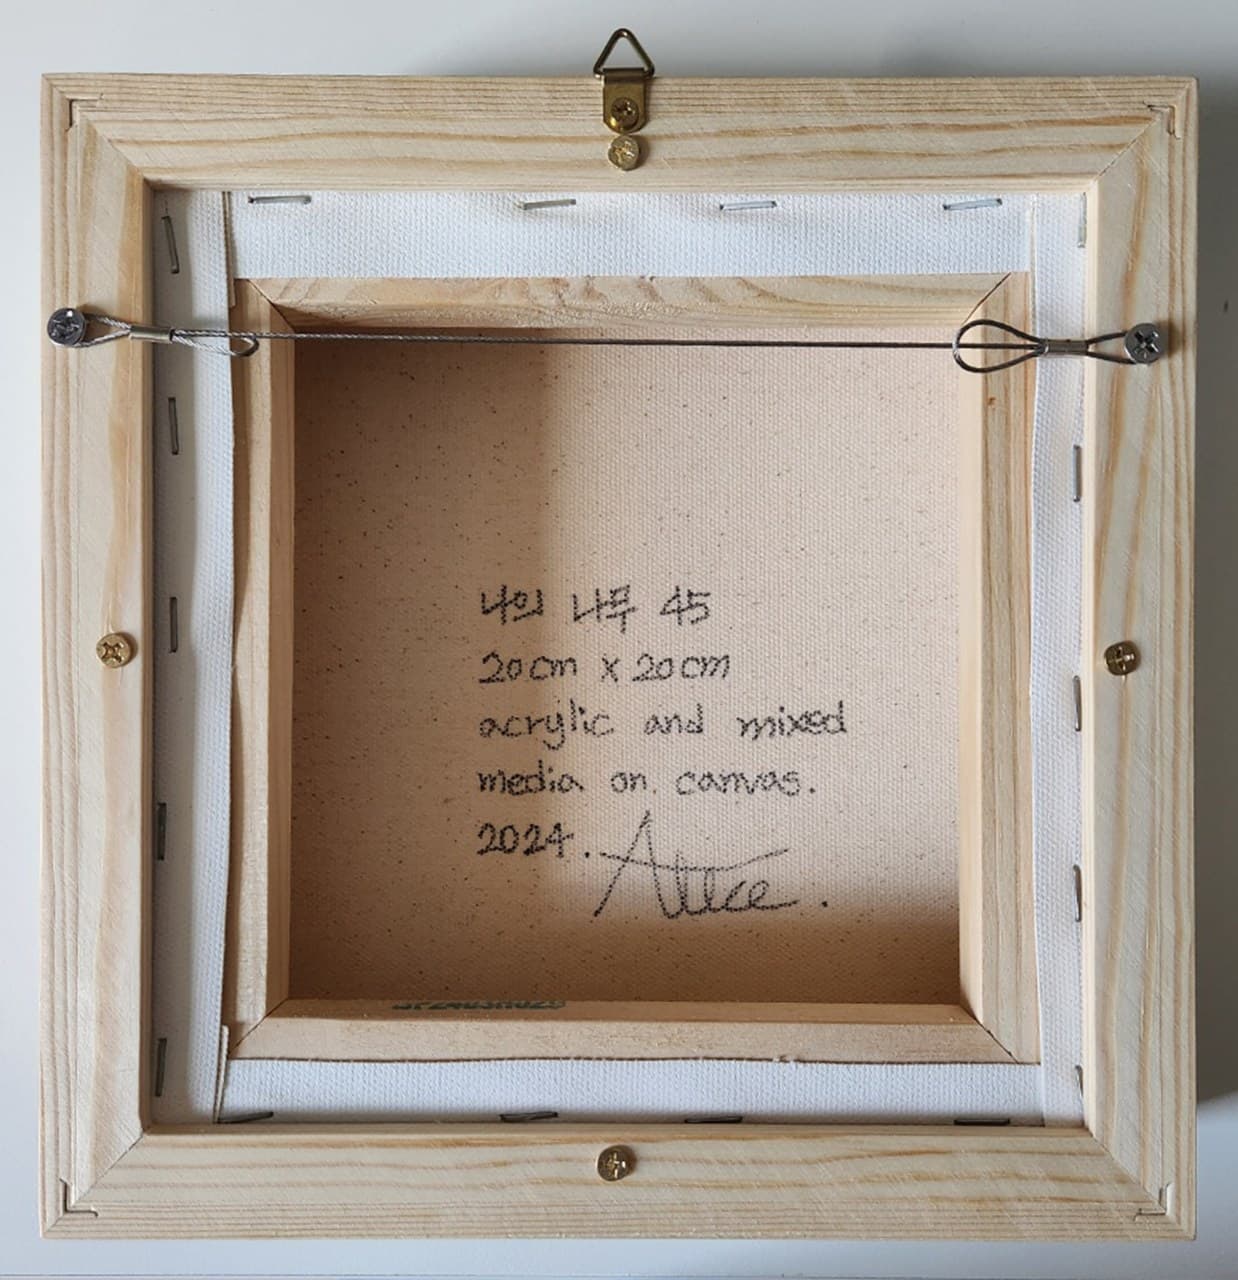 나의 나무 45
20cm x 20cm
acrylic and mixed
media on canvas.
2024.